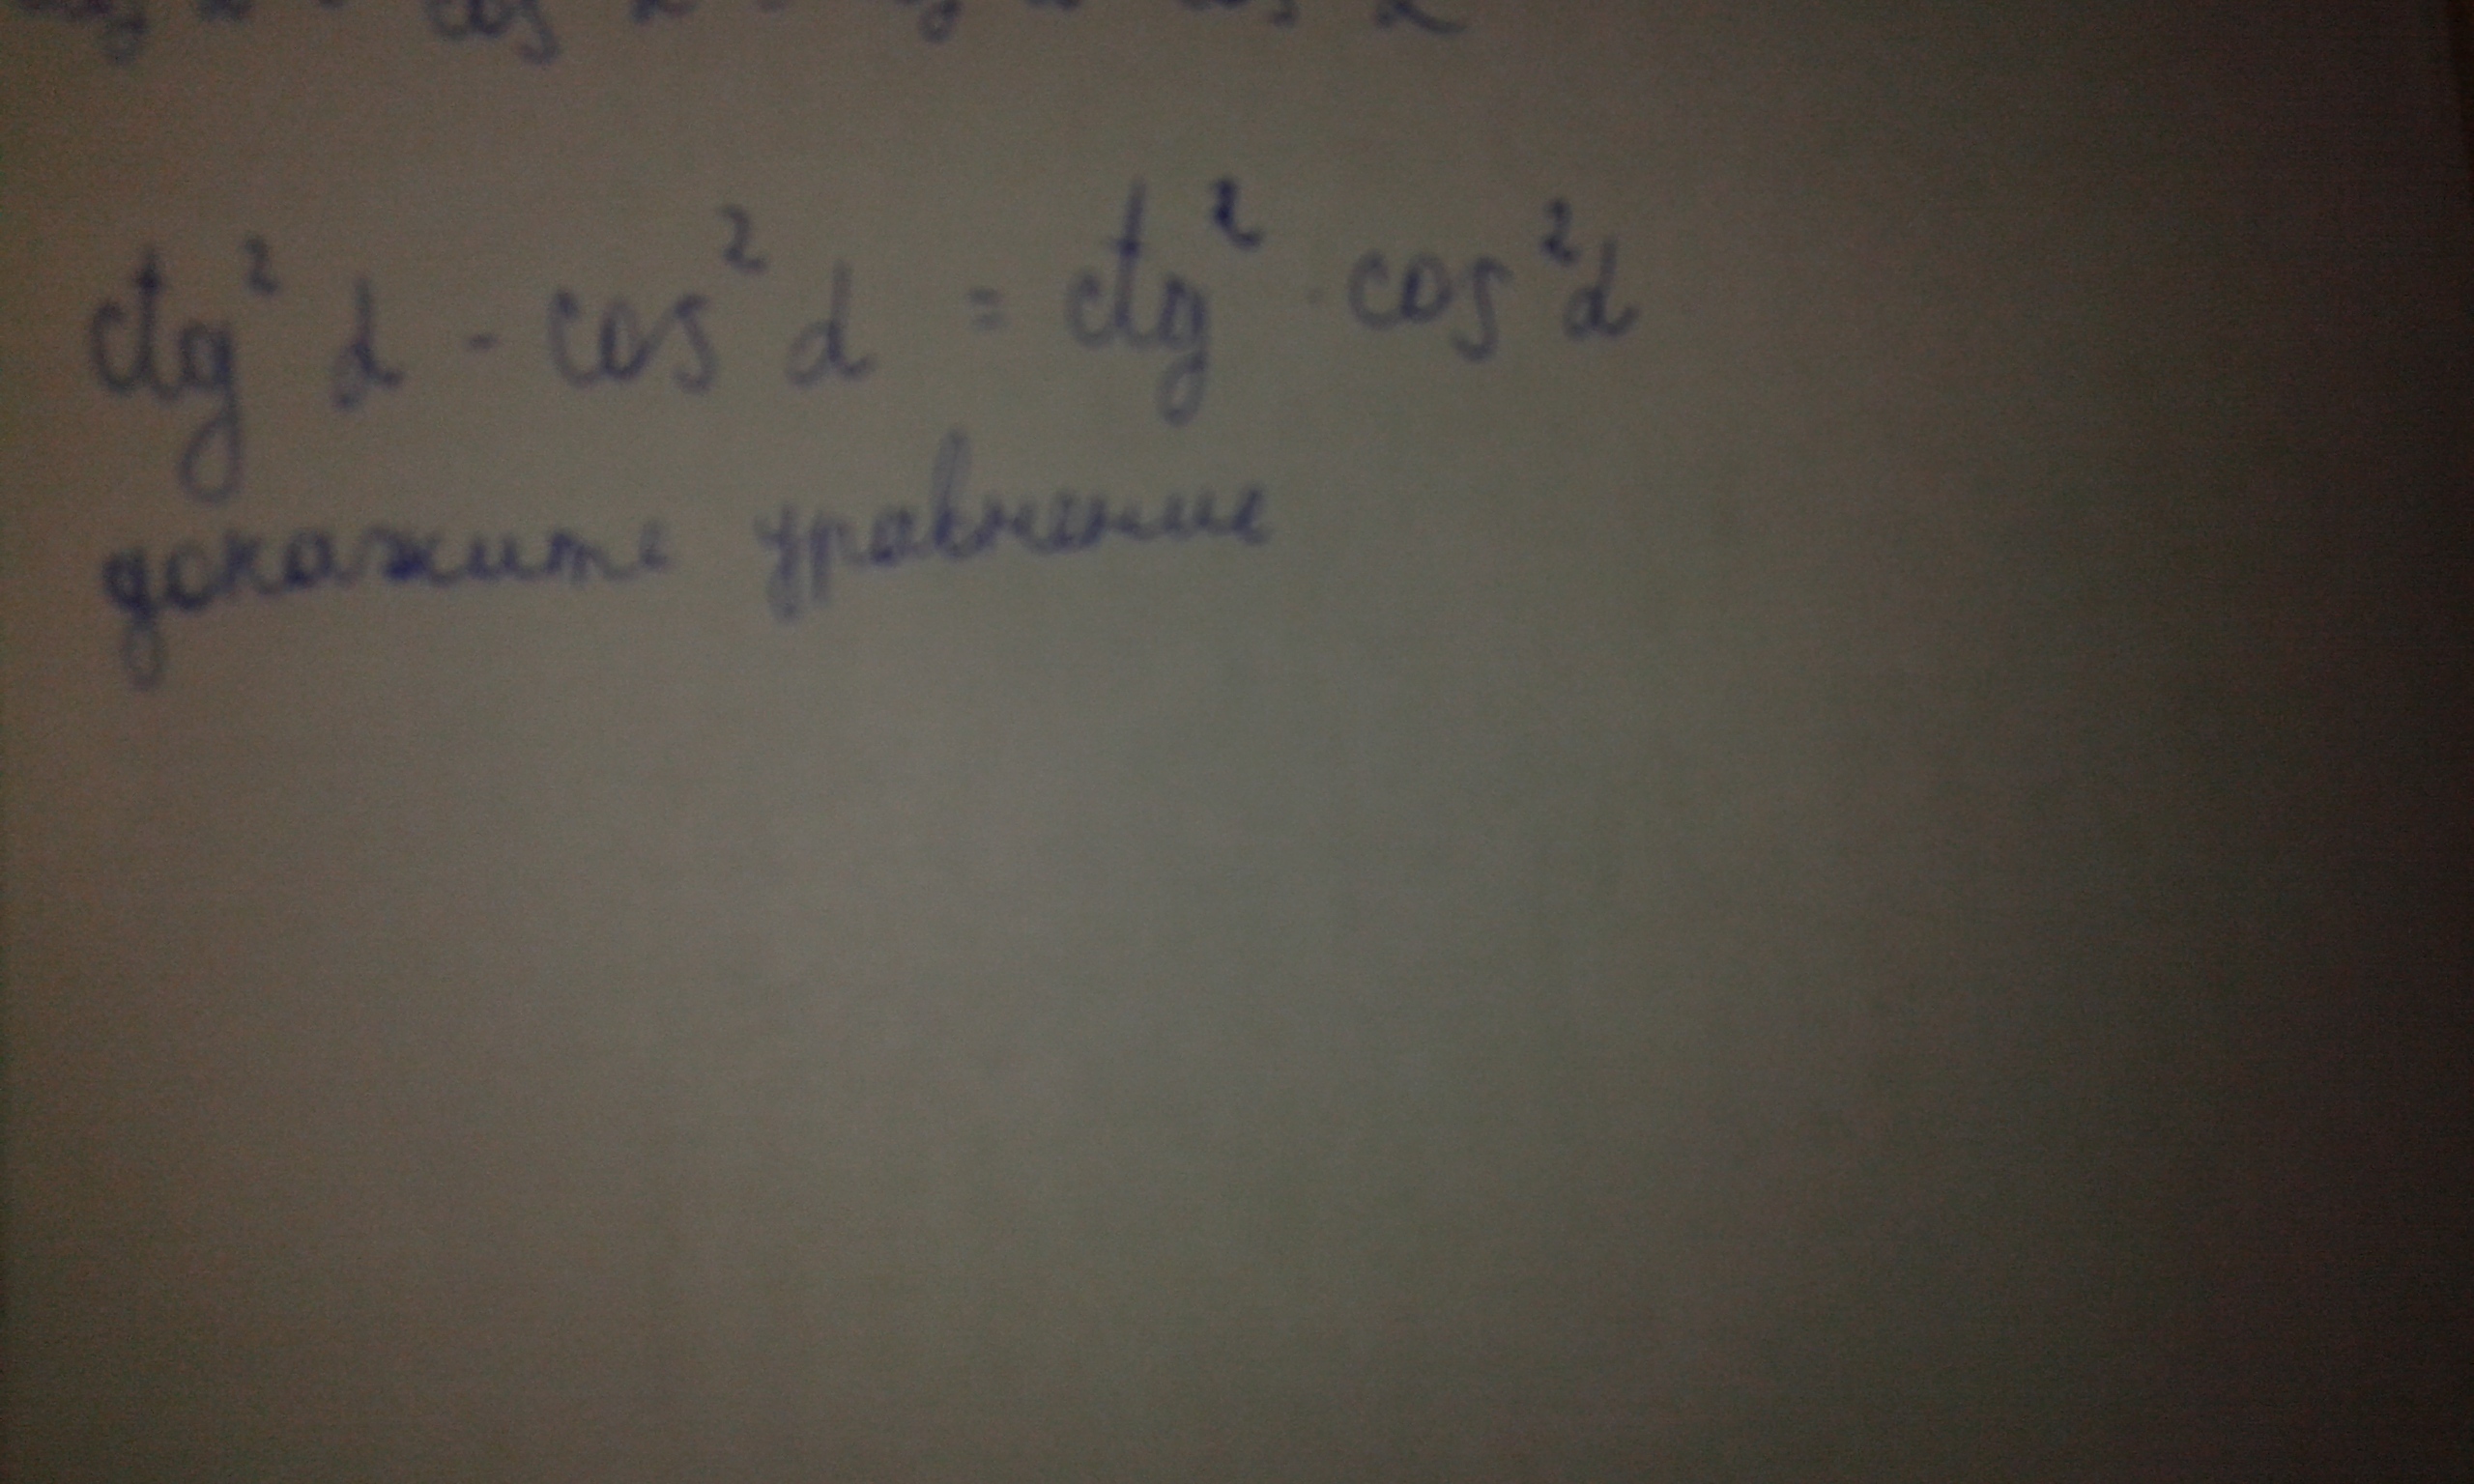 cos
ctg² α - cos² α = ctg² · cos² α
докажите уравнение